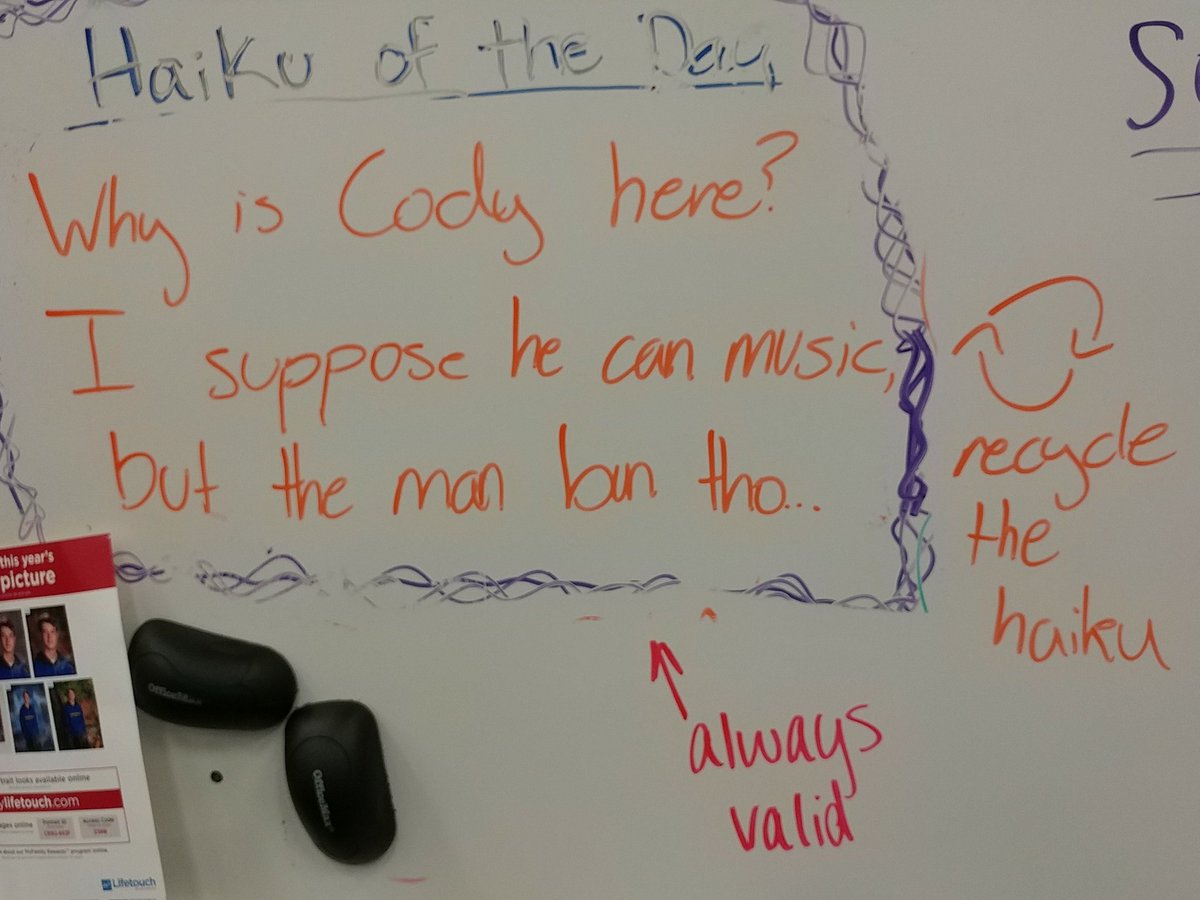 Haiku of the Day
Why is Cody here?
I suppose he can music,
but the man bun tho...
recycle
the
haiku
always
valid
this year's
picture
OfficeMax
OfficeMax
trait looks available online
ylifetouch.com
Lifetouch